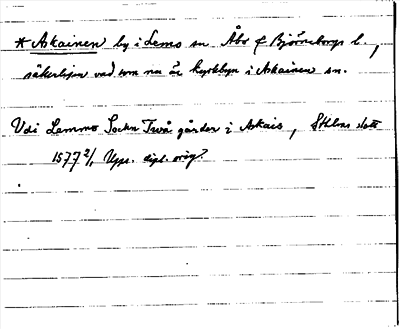 * Askainen by i Lemo sn. Åbo & Björneborgs l.,
säkerligen vad som nu är kyrkbyn i Askainen sn.
Vdi Lemmo Sockn Två gårder i Askais, Sthlms slott
1577 2/1 Upps. dipl. orig?